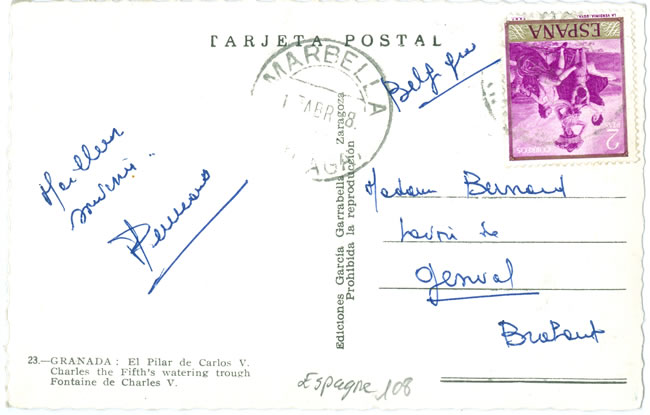 TARJETA POSTAL
MARBELLA
ABR
LA VENDIMIA. GOYA
ESPAÑA
CORREOS
2
PTAS
Belgique
Meilleurs
souvenirs
Madame Bernard
Genval
Brabant
Ediciones García Garrabella Zaragoza
Prohibida la reproducción
23.—GRANADA: El Pilar de Carlos V.
Charles the Fifth's watering trough
Fontaine de Charles V.
Espagne 108